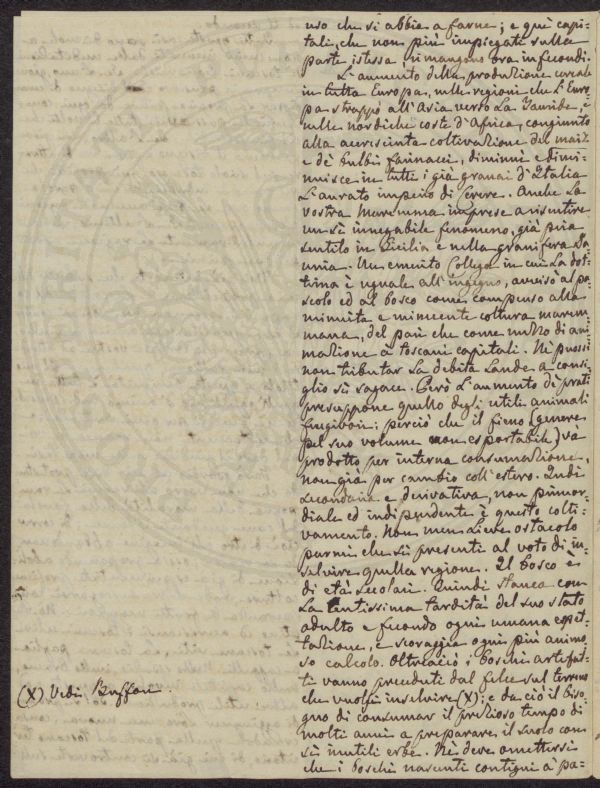 uso che si abbia a farne; e quei capi-
tali, che non più impiegati sulla
parte istessa rimangono ora infecondi.
L'aumento della produzione cereale
in tutta Europa, nelle regioni che l'Euro
pa strappò all'Asia verso la Tauride, e
nelle nordiche coste d'Africa, congiunto
alla accresciuta coltivazione del maiz
e de' bulbi farinacei, diminuì e dimi-
nuisce in tutti i già granai d'Italia
L'aurato impero di Cerere. Anche la
vostra Maremma imprese a risentire
un sì innegabile fenomeno, già pria
sentito in Sicilia e nella granifera
Un emerito Collega in cui la dot-
trina è uguale all'ingegno, avvisò al pa-
scolo ed al bosco come compenso alla
minuita e minuente coltura marem-
mana, del pari che come mezzo di ani-
mazione a' toscani capitali. Nè puossi
non tributar la debita laude a consi-
glio sì sagace. Però l'aumento di prati
presuppone quello degli utili animali
frugivori: perciò che il fieno (genere
pel suo volume non esportabile) và
prodotto per interna consumazione,
non già per cambio coll'estero. Indi
secondaria e derivativa, non primor-
diale ed indipendente è questo colti-
vamento. Non men lieve ostacolo
parmi che si presenti al voto di in-
salvire quella regione. Il bosco è
di età secolari. Quindi stanca con
la lentissima tardità del suo stato
adulto e fecondo ogni umana aspet-
tazione, e scoraggia ogni più animo
so calcolo. Oltreaciò i boschi artefat-
ti vanno preceduti dal felce sul terreno
che vuolsi inselvire (X); e da ciò il biso
gno di consumar il prezioso tempo di
molti anni a preparare il suolo con
sì inutili erbe. Nè deve omettersi
che i boschi nascenti contigui a' pa-
(X) Vedi Buffon.